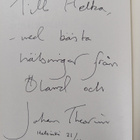 Till Helka,
med bästa
hälsningar från
Öland och
Johan Theorin
Helsinki